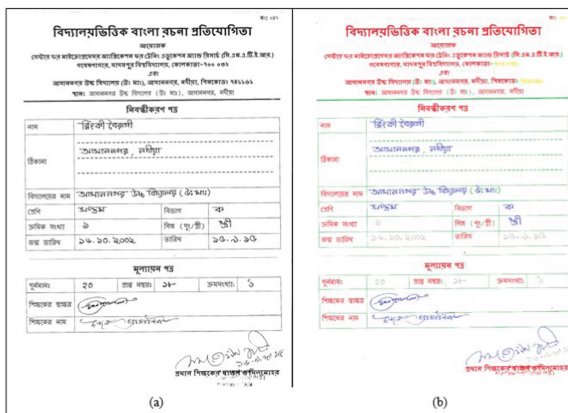 বিদ্যালয়ভিত্তিক বাংলা রচনা প্রতিযোগিতা
আয়োজক
সেন্টার ফর মাইক্রোপ্রসেসর অ্যাপ্লিকেশন ফর ট্রেনিং এডুকেশন অ্যান্ড রিসার্চ (সি.এম.এ.টি.ই.আর.)
যাদবপুর বিশ্ববিদ্যালয়, কোলকাতা-৭০০ ০৩২
এবং
আসাননগর উচ্চ বিদ্যালয় (উঃ মাঃ), আসাননগর, নদীয়া, পিনকোডঃ ৭৪১১৬১
স্থানঃ আসাননগর উচ্চ বিদ্যালয় (উঃ মাঃ), আসাননগর, নদীয়া
নিবন্ধীকরণ পত্র
নাম রিংকী বৈরাগী
ঠিকানা আসাননগর, নদীয়া
বিদ্যালয়ের নাম আসাননগর উচ্চ বিদ্যালয় (উঃ মাঃ)
শ্রেণি সপ্তম বিভাগ ক
ক্রমিক সংখ্যা ৯ লিঙ্গ (পুং/স্ত্রী) স্ত্রী
জন্ম তারিখ ১৬.১০.২০০২ তারিখ
মূল্যায়ন পত্র
পূর্ণমানঃ ২০ প্রাপ্ত নম্বরঃ ১৮ ক্রমসংখ্যাঃ ১
শিক্ষকের স্বাক্ষর
শিক্ষকের নাম
প্রধান শিক্ষকের স্বাক্ষর
(a)
বিদ্যালয়ভিত্তিক বাংলা রচনা প্রতিযোগিতা
আয়োজক
সেন্টার ফর মাইক্রোপ্রসেসর অ্যাপ্লিকেশন ফর ট্রেনিং এডুকেশন অ্যান্ড রিসার্চ (সি.এম.এ.টি.ই.আর.)
যাদবপুর বিশ্ববিদ্যালয়, কোলকাতা-৭০০ ০৩২
এবং
আসাননগর উচ্চ বিদ্যালয় (উঃ মাঃ), আসাননগর, নদীয়া, পিনকোডঃ ৭৪১১৬১
স্থানঃ আসাননগর উচ্চ বিদ্যালয় (উঃ মাঃ), আসাননগর, নদীয়া
নিবন্ধীকরণ পত্র
নাম রিংকী বৈরাগী
ঠিকানা আসাননগর, নদীয়া
বিদ্যালয়ের নাম আসাননগর উচ্চ বিদ্যালয় (উঃ মাঃ)
শ্রেণি সপ্তম বিভাগ ক
ক্রমিক সংখ্যা ৯ লিঙ্গ (পুং/স্ত্রী) স্ত্রী
জন্ম তারিখ ১৬.১০.২০০২ তারিখ
মূল্যায়ন পত্র
পূর্ণমানঃ ২০ প্রাপ্ত নম্বরঃ ১৮ ক্রমসংখ্যাঃ ১
শিক্ষকের স্বাক্ষর
শিক্ষকের নাম
প্রধান শিক্ষকের স্বাক্ষর
(b)